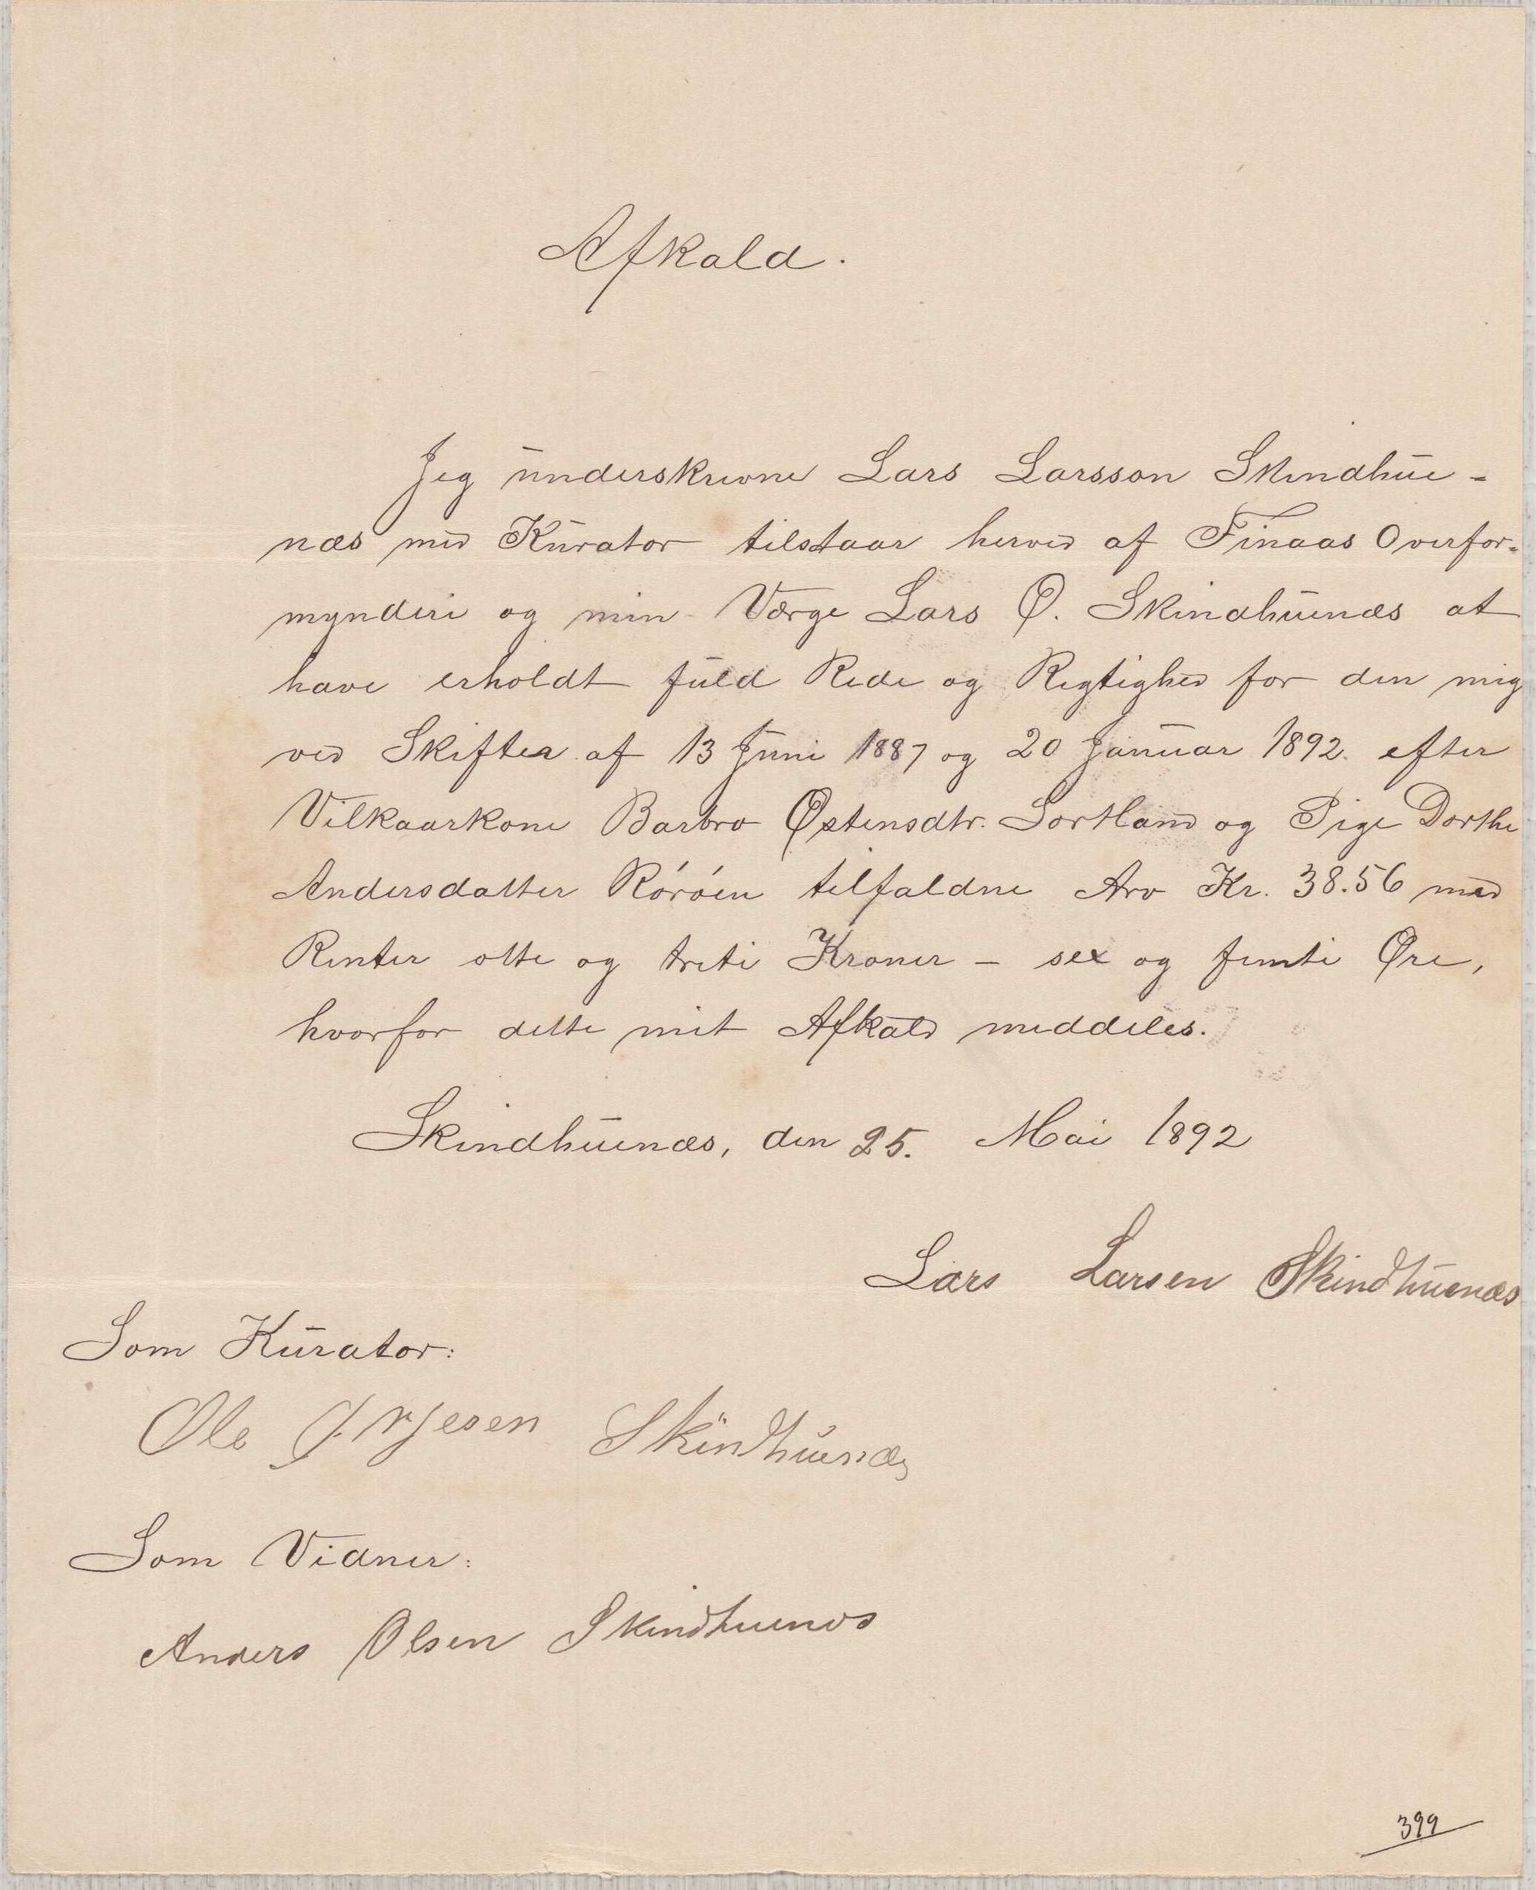 Afkald.
Jeg underskrevne Lars Larsson Skindhue-
næs med Kurator tilstaar herved af Finaas Overfor-
mynderi og min Værge Lars Ø. Skindhuenæs at
have erholdt fuld Rede og Regtighed for den mig
ved Skifter af 13 Juni 1887 og 20 Januar 1892 efter
Vilkaarkone Barbro Østensdtr. Sortland og Pige Dorthe
Andersdatter Røröen tilfaldne Arv Kr. 38.56 med
Renter otte og treti Kroner – sex og femti Øre,
hvorfor dette mit Afkald meddeles.
Skindhuenæs, den 25. Mai 1892
Lars Larsen Skindhuenæs
Som Kurator:
Ole Skindhuenæs
Som Vidner:
Anders Olsen Skindhuenæs
399